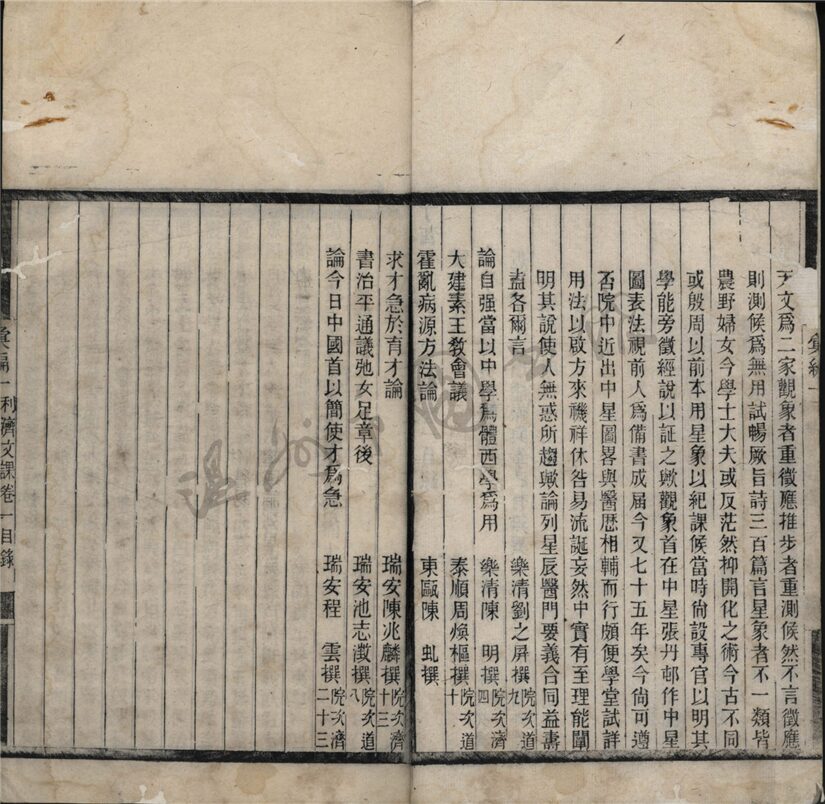 天文爲二家觀象者重徵應推步者重測候然不言徵應
則測候爲無用試暢厥旨詩三百篇言星象者不一類皆
農野婦女今學士大夫或反茫然抑開化之術今古不同
或殷周以前本用星象以紀課候當時尙設專官以明其
學能旁徵經說以証之歟觀象首在中星張丹邨作中星
圖表法視前人爲備書成届今又七十五年矣今尙可遵
否院中近出中星圖畧與醫歴相輔而行頗便學堂試詳
用法以啟方來禨祥休咎易流誕妄然中實有至理能闡
明其說使人無惑所趨歟論列星辰醫門要義合同益壽
盍各爾言 樂清劉之屏撰 院次道九
論自强當以中學爲體西學爲用 樂清陳 明撰 院次濟四
大建素王敎會議 泰順周煥樞撰 院次道十
霍亂病源方法論 東甌陳 虬撰
求才急於育才論 瑞安陳兆麟撰 院次濟十三
書治平通議弛女足章後 瑞安池志澂撰 院次道八
論今日中國首以簡使才爲急 瑞安程 雲撰 院次濟二十三
彙編一 利濟文課卷一目錄